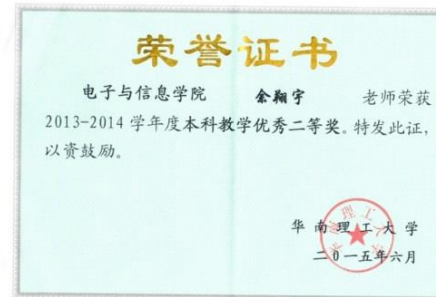 荣誉证书
电子与信息学院 余翔宇 老师荣获
2013-2014 学年度本科教学优秀二等奖。特发此证，
以资鼓励。
华南理工大学
二〇一五年六月
华南理工大学